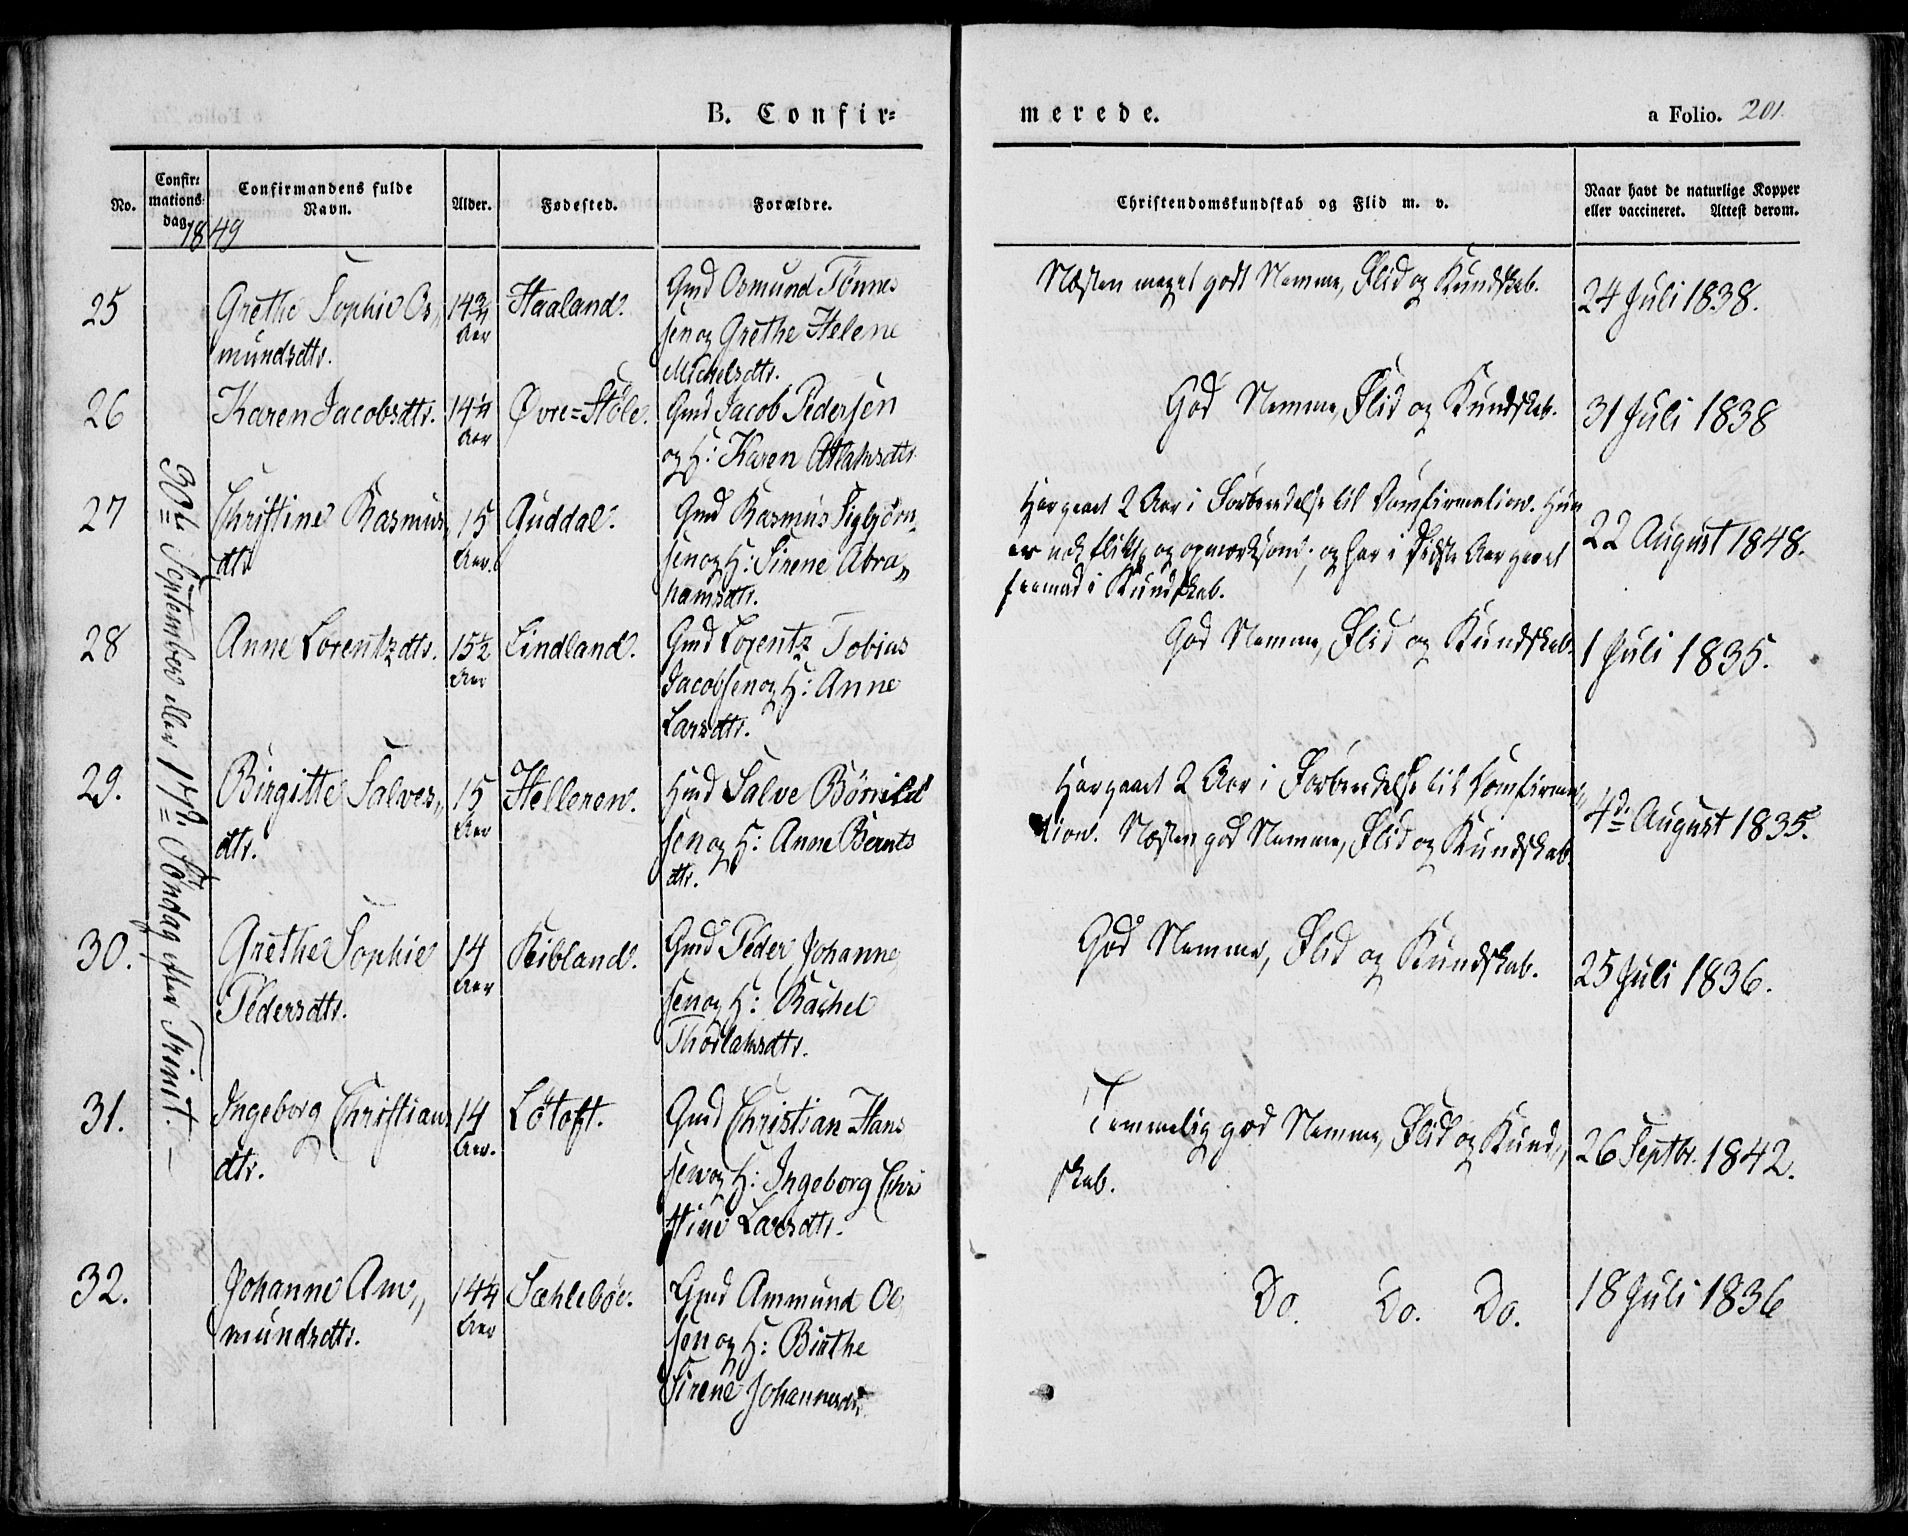 B. Confir=
merede.
a Folio. 201.
No.
Confir=
mations=
dag.
1849
Confirmandens fulde
Navn.
Alder.
Fødested.
Forældre.
Christendomskundskab og Flid m. v.
Naar havt de naturlige Kopper
eller vaccineret. Attest derom.
30te September eller 17de Söndag efter Trinit. —
25
Grethe Sophie Os„
mundsdtr.
14¾
Aar
Haaland.
Gmd Osmund Tönnes
sen og Grethe Helene
Michelsdtr.
Næsten meget godt Nemme, Flid og Kundskab.
24 Juli 1838.
26
Karen Jacobsdtr.
14¼
Aar
Øvre=Stöle.
Gmd Jacob Pedersen
og H: Karen Atlaksdtr.
God Nemme, Flid og Kundskab.
31 Juli 1838
27
Christine Rasmus„
dtr.
15
Aar.
Guddal.
Gmd Rasmus Sigbjörn„
sen og H: Sirene Abra„
hamsdtr.
Har gaaet 2 Aar i Forberedelse til Confirmation. Hun
er nok flittig og opmærksom; og har i sidste Aar gaaet
fremad i Kundskab.
22 August 1848.
28
Anne Lorentzdtr.
15½
Aar
Lindland.
Gmd Lorentz Tobias
Jacobsen og H: Anne
Larsdtr.
God Nemme, Flid og Kundskab.
1 Juli 1835.
29.
Birgitte Salves„
dtr.
15
Aar
Helleren.
Hmd Salve Börnild
sen og H: Anne Bernts
dtr.
Har gaaet 2 Aar i Forberedelse til Confirma„
tion. Næsten god Nemme, Flid og Kundskab
4de August 1835.
30.
Grethe Sophie
Pedersdtr.
14
Aar
Kibland.
Gmd Peder Johanne
sen og H: Rachel
Thorlaksdtr.
God Nemme, Flid og Kundskab.
25 Juli 1836.
31.
Ingeborg Christians
dtr.
14
Aar.
Lötoft.
Gmd Christian Hans
sen og H: Ingeborg Chri
stine Larsdtr.
Temmelig god Nemme, Flid og Kund„
skab.
26 Septbr. 1842.
32.
Johanne Am„
mundsdtr.
14¼
Aar
Sæhleböe.
Gmd Ammund Ol
sen og H: Birthe
Sirene Johannesdtr.
Do. Do. Do.
18 Juli 1836